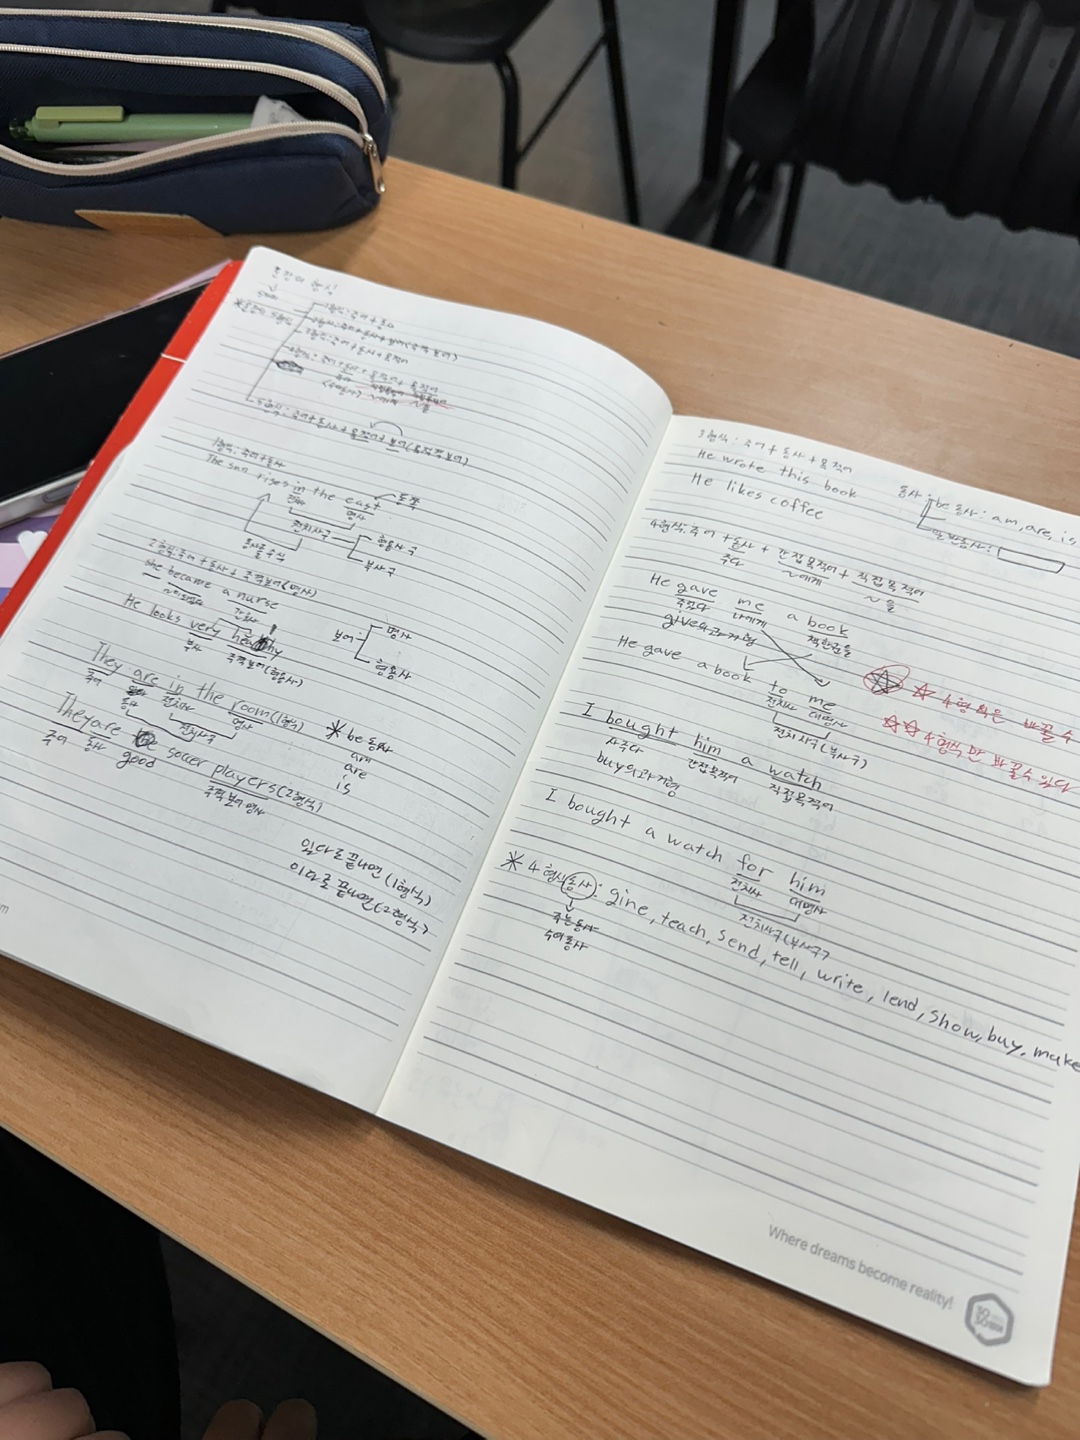 문장의 형식!
1형식: 주어+동사
2형식: 주어+동사+보어(주격 보어)
3형식: 주어+동사+목적어
4형식: 주어+동사+목적어+목적어
~에게 ~을
5형식: 주어+동사+목적어+보어(목적격 보어)
1형식: 주어+동사
The sun rises in the east 동쪽
전치사 명사
전치사구
형용사구
부사구
동사를 수식
2형식: 주어+동사+주격보어(명사)
She became a nurse
He looks very healthy
부사 주격보어(형용사)
보어:
명사
형용사
They are in the room(1형식)
주어 동사 전치사 명사
전치사구
They are good soccer players(2형식)
주어 동사
주격 보어 명사
* be 동사
am
are
is
있다로 끝나면(1형식)
이다로 끝나면(2형식)
3형식: 주어+동사+목적어
He wrote this book
He likes coffee
동사:
be 동사: am, are, is
일반동사:
4형식: 주어+동사+간접목적어+직접목적어
주다 ~에게 ~을
He gave me a book
주었다 나에게 책한권을
give의과거형
He gave a book to me
전치사 대명사
전치사구(부사구)
☆ 4형식은 바꿀 수
☆☆ 4형식만 바꿀수 있다
I bought him a watch
사주다 간접목적어 직접목적어
buy의과거형
I bought a watch for him
전치사 대명사
전치사구(부사구)
* 4형식동사: gine, teach, send, tell, write, lend, show, buy, make
주는동사
수여동사
Where dreams become reality!